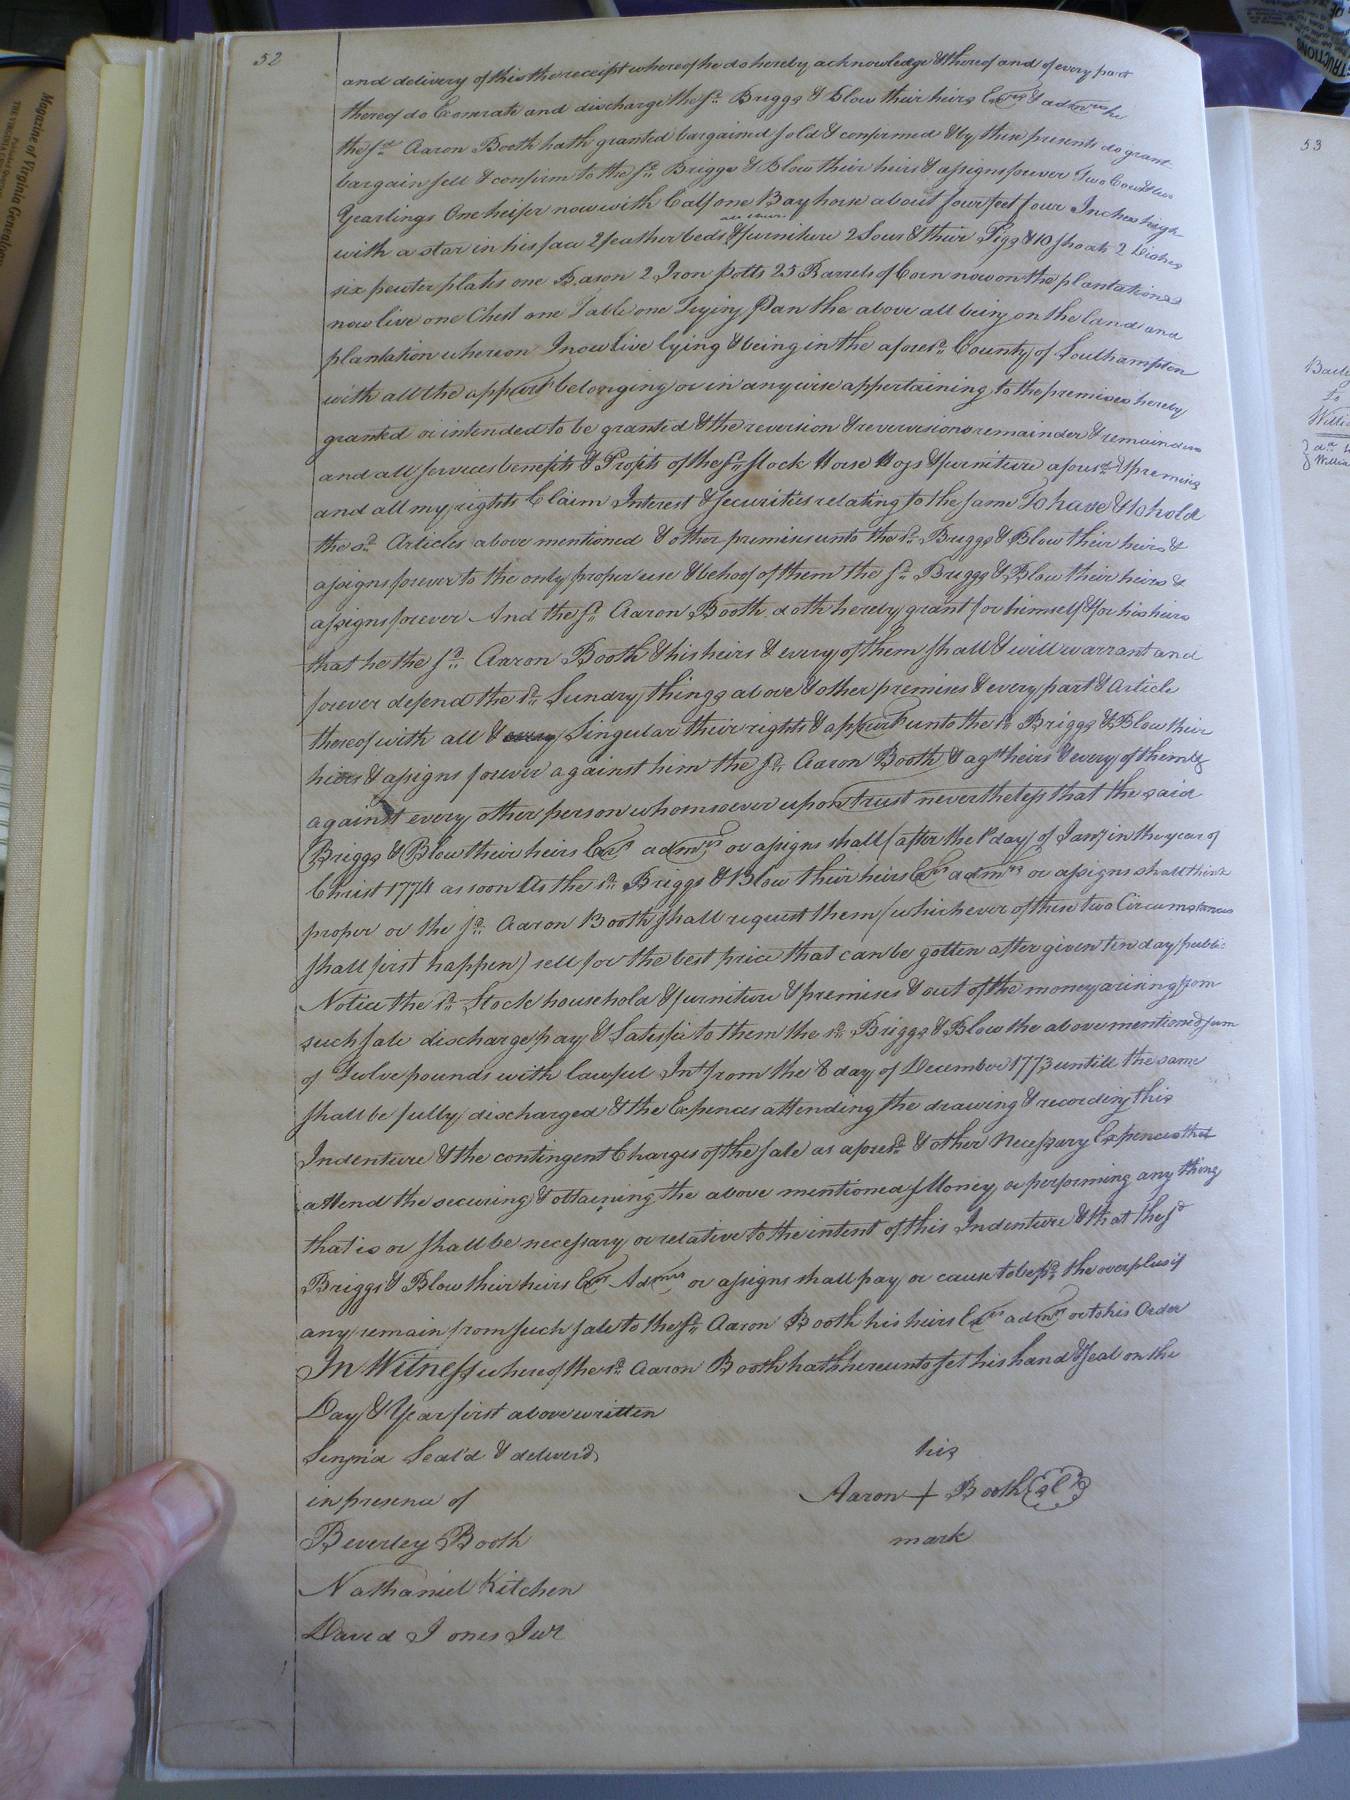 52
and delivery of this the receipt whereof he do hereby acknowledge & thereof and of every part
thereof do Exonrate and discharge the sd. Briggs & Blow their heirs Exrs & admrs he
the sd. Aaron Booth hath granted bargained sold & confirmed & by these presents do grant
bargain sell & confirm to the sd. Briggs & Blow their heirs & assigns forever Two Cows & two
Yearlings One heifer now with Calf one Bay horse about four feet four Inches high
with a star in his face 2 feather beds & furniture 2 Sows & their Pigg & 10 shoats 2 Dishes
six pewter plates one Bason 2 Iron potts 25 Barrels of Corn now on the plantation
now live one Chest one Table one Frying Pan the above all being on the land and
plantation whereon I now live lying & being in the aforesd. County of Southampton
with all the appurts belonging or in any wise appertaining to the premises hereby
granted or intended to be granted & the reversion & reversions remainder & remainders
and all services benefits & Profits of the sd. stock Horse Hogs & furniture aforesd. & premises
and all my rights Claim Interest & securities relating to the same To have & to hold
the sd. Articles above mentioned & other premises unto the sd. Briggs & Blow their heirs &
assigns forever to the only proper use & behoof of them the sd. Briggs & Blow their heirs &
assigns forever And the sd. Aaron Booth doth hereby grant for himself & for his heirs
that he the sd. Aaron Booth & his heirs & every of them shall & will warrant and
forever defend the sd. Sundry things above & other premises & every part & Article
thereof with all & every Singular their rights & appurts unto the sd. Briggs & Blow their
heirs & assigns forever against him the sd. Aaron Booth & agst heirs & every of them &
against every other person whomsoever upon trust nevertheless that the said
Briggs & Blow their heirs Exrs admrs or assigns shall (after the 1st day of Jany in the year of
Christ 1774 as soon As the sd. Briggs & Blow their heirs Exrs admrs or assigns shall think
proper or the sd. Aaron Booth shall request them (whichever of these two Circumstances
shall first happen) sell for the best price that can be gotten after given ten day publi:
Notice the sd. Stock household & furniture & premises & out of the money arising from
such sale discharge pay & Satisfie to them the sd. Briggs & Blow the above mentioned sum
of Twelve pounds with lawful Int from the 8 day of December 1773 untill the same
shall be fully discharged & the Expences attending the drawing & recording this
Indenture & the contingent Charges of the sale as aforesd. & other Necessary Expences that
attend the securing & obtaining the above mentioned Money or performing any thing
that is or shall be necessary or relative to the intent of this Indenture & that the sd
Briggs & Blow their heirs Exrs Admrs or assigns shall pay or cause to be pd. the overplus if
any remain from such sale to the sd. Aaron Booth his heirs Exrs admrs or to his Order
In Witness whereof the sd. Aaron Booth hath hereunto set his hand & seal on the
Day & Year first above written
Seign'd Seal'd & deliver'd
his
in presence of
Aaron + Booth
Beverley Booth
mark
Nathaniel Kitchen
David Jones Jur
53
Magazine of Virginia Genealogy